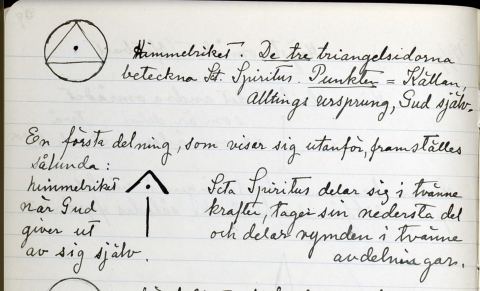 Himmelriket. De tre triangelsidorna
beteckna St. Spiritus. Punkten = Källan,
Alltings ursprung, Gud själv.
En första delning, som visar sig utanför, framställes
sålunda:
himmelriket
när Gud
giver ut
av sig själv.
Scta Spiritus delar sig i tvänne
krafter, tager sin nedersta del
och delar rymden i tvänne
avdelningar.